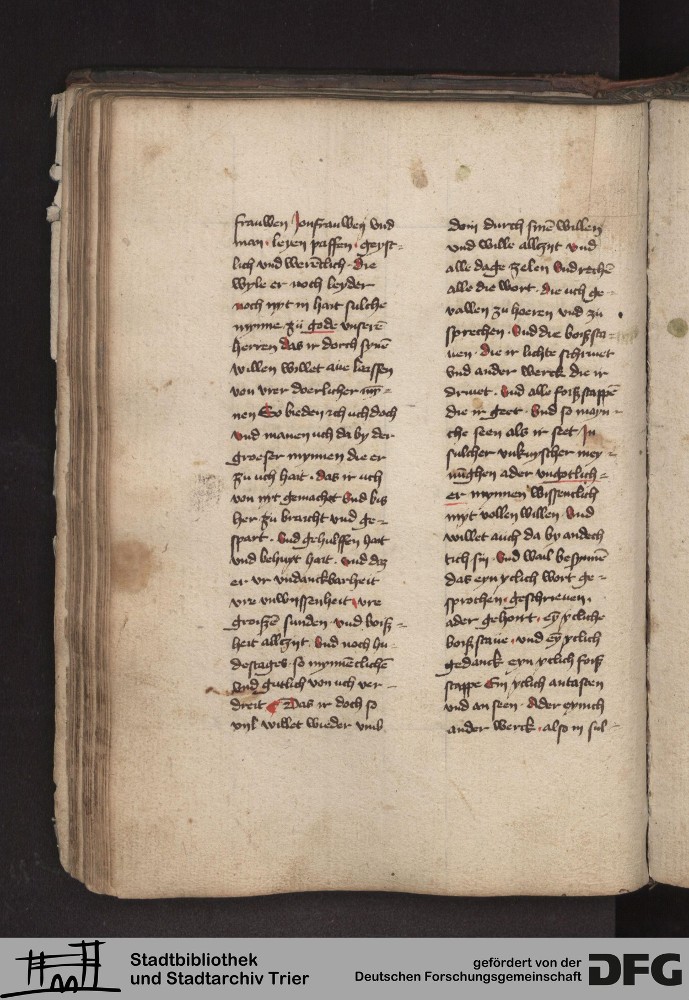 frauwen Jonfrauwen vnd
man · leyen paffen · geyst-
lich vnd werētlich · die
wyle er noch leyder
noch nyt in hait sulche
mynne zü gode vnserē
herren das ir dorch synē
willen willet aue laissen
von vrer doerlicher my-
nen So bieden ich uch doch
vnd manen uch da by der
groeser mynnen die er
zu uch hait · das ir uch
von nyt gemachet vnd bis
her zu braicht vnd ge-
spart · vnd gehulffen hait
vnd behuyt hait · vnd das
er vr vndanckbarheit
vre vnwyssenheit vre
groissē sunden · vnd boiß-
heit allzyt · vnd noch hu-
destages · so mynnēclichē
vnd gutlich von uch ver-
dreit Das ir doch so
vyl willet wieder vmb
doin durch synē willen
vnd wille allzyt vnd
alle dage zelen vnd rechē
alle die wort · die uch ge-
vallen zu hoeren vnd zu
sprechen · vnd die boißsta-
uen · die ir lichte schriuet
vnd ander werck die ir
driuet · vnd alle foißstappē
die ir geet · vnd so mayn-
che seen als ir seet Jn
sulcher vnkuyscher mey-
nūghen ader vngotlich-
er mynnen wissenclich
myt vollen willen · vnd
willet auch da by andech
tich sin · vnd wail besynnē
das eyn yclich wort ge-
sprochen · geschrieuen ·
ader gehoirt · ey ycliche
boißstaue · vnd ey yclich
gedanck eyn yclich foiß
stappe Ein yclich antasten
vnd an seen · Ader eynich
ander werck · also in sul-
Stadtbibliothek
und Stadtarchiv Trier
gefördert von der
Deutschen Forschungsgemeinschaft
DFG